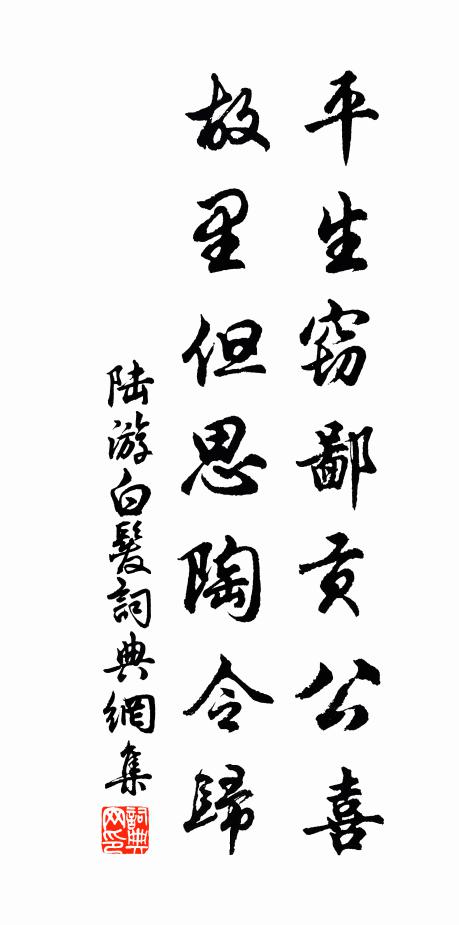 平生窃鄙贡公喜
故里但思陶令歸
陆游白髮詞典網集
詞典网印